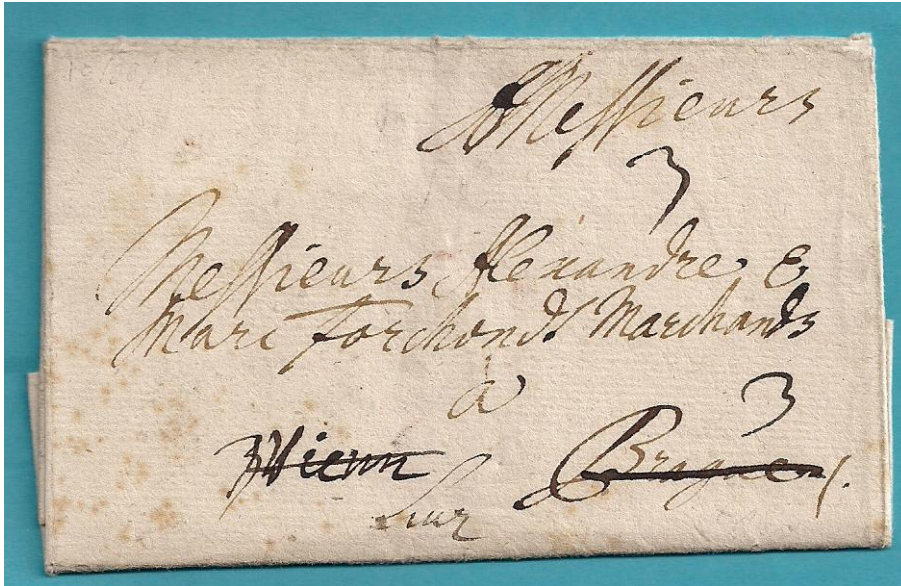 A Messieurs
3
Messieurs Alexandre &
Marc Forchondt Marchands
à
3
Wienn Prague